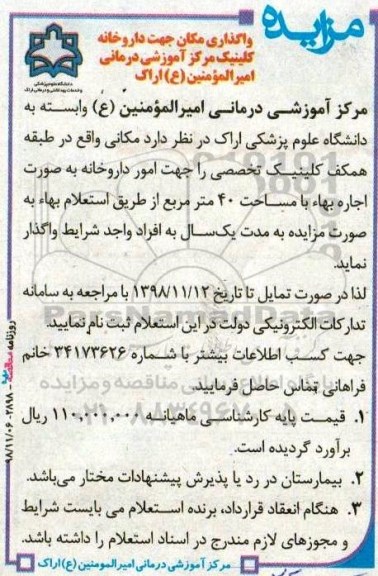 مزایده
واگذاری مکان جهت داروخانه
کلینیک مرکز آموزشی درمانی
امیرالمؤمنین (ع) اراک
دانشگاه علوم پزشکی
و خدمات بهداشتی و درمانی اراک
مرکز آموزشی درمانی امیرالمؤمنین (ع) وابسته به
دانشگاه علوم پزشکی اراک در نظر دارد مکانی واقع در طبقه
همکف کلینیک تخصصی را جهت امور داروخانه به صورت
اجاره بهاء با مساحت ۴۰ متر مربع از طریق استعلام بهاء به
صورت مزایده به مدت یک‌سال به افراد واجد شرایط واگذار
نماید.
لذا در صورت تمایل تا تاریخ ۱۳۹۸/۱۱/۱۲ با مراجعه به سامانه
تدارکات الکترونیکی دولت در این استعلام ثبت نام نمایید.
جهت کسب اطلاعات بیشتر با شماره ۳۴۱۷۳۶۲۶ خانم
فراهانی تماس حاصل فرمایید.
۱. قیمت پایه کارشناسی ماهیانه ۱۱۰,۰۰۰,۰۰۰ ریال
برآورد گردیده است.
۲. بیمارستان در رد یا پذیرش پیشنهادات مختار می‌باشد.
۳. هنگام انعقاد قرارداد، برنده استعلام می بایست شرایط
و مجوزهای لازم مندرج در اسناد استعلام را داشته باشد.
مرکز آموزشی درمانی امیرالمومنین (ع) اراک
روزنامه مناقصه مزایده - ۲۸۹۸ - ۹۸/۱۱/۰۶
ParsNamadData
پایگاه اطلاع رسانی مناقصه و مزایده